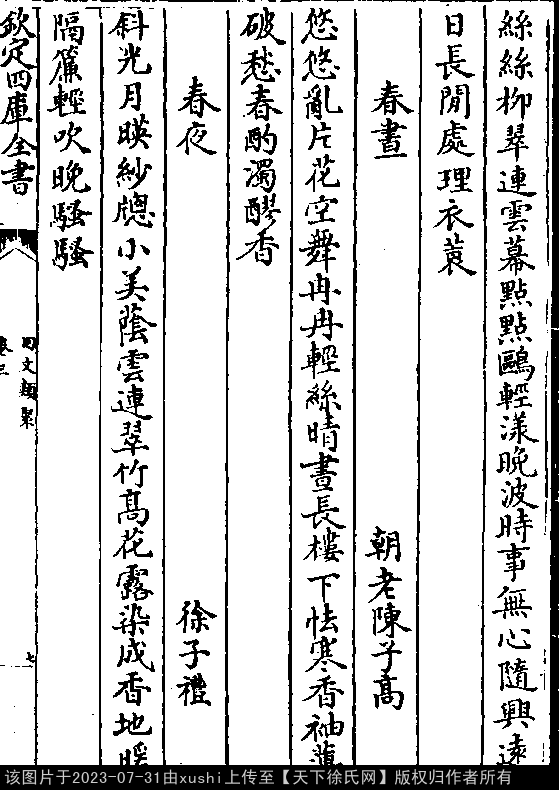 絲絲柳翠連雲幕點點鷗輕漾晩波時事無心隨興逺
日長閒處理衣蓑
春晝 朝老陳子髙
悠悠亂片花空舞冉冉輕絲晴晝長樓下怯寒香袖薄
破愁春酌濁醪香
春夜 徐子禮
斜光月暎紗牕小美蔭雲連翠竹髙花露染成香地暖
隔簾輕吹晚騷騷
欽定四庫全書
回文類聚
卷三
七
该图片于2023-07-31由xushi上传至【天下徐氏网】版权归作者所有